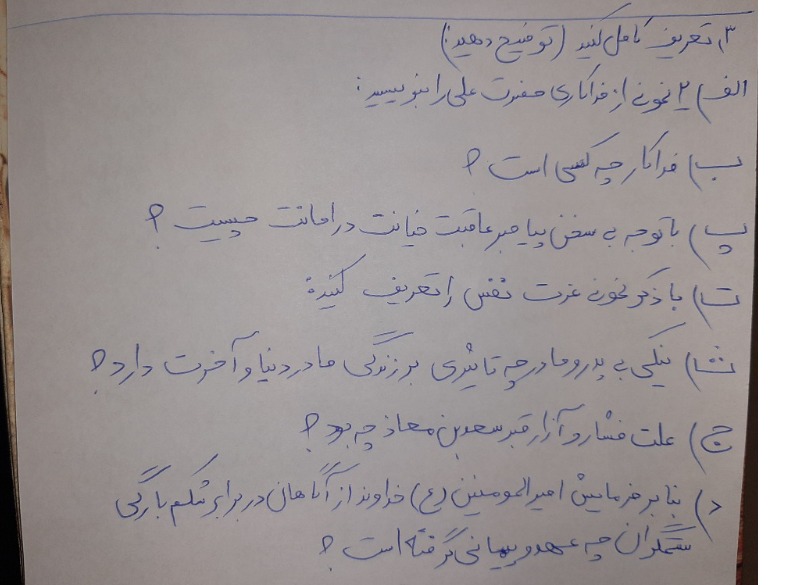 ۳, تعریف کامل کنید (توضیح دهید:)
الف) ۲ نمونه از فداکاری حضرت علی را بنویسید:
ب) فداکار چه کسی است ؟
پ) با توجه بی سخن پیامبر عاقبت خیانت در امانت چیست ؟
ت) با ذکر نمونه عزت نفس را تعریف کنید؟
ث) نیکی بی پدر و مادر چه تاثیری بر زندگی ما در دنیا و آخرت دارد ؟
ج) علت فشار و آزار قبر سعد بن معاذ چه بود ؟
د) بنا بر فرمایش امیرالمومنین (ع) خداوند از آگاهان در برابر شکم بارگی
ستمگران چه عهد و پیمانی گرفته است ؟